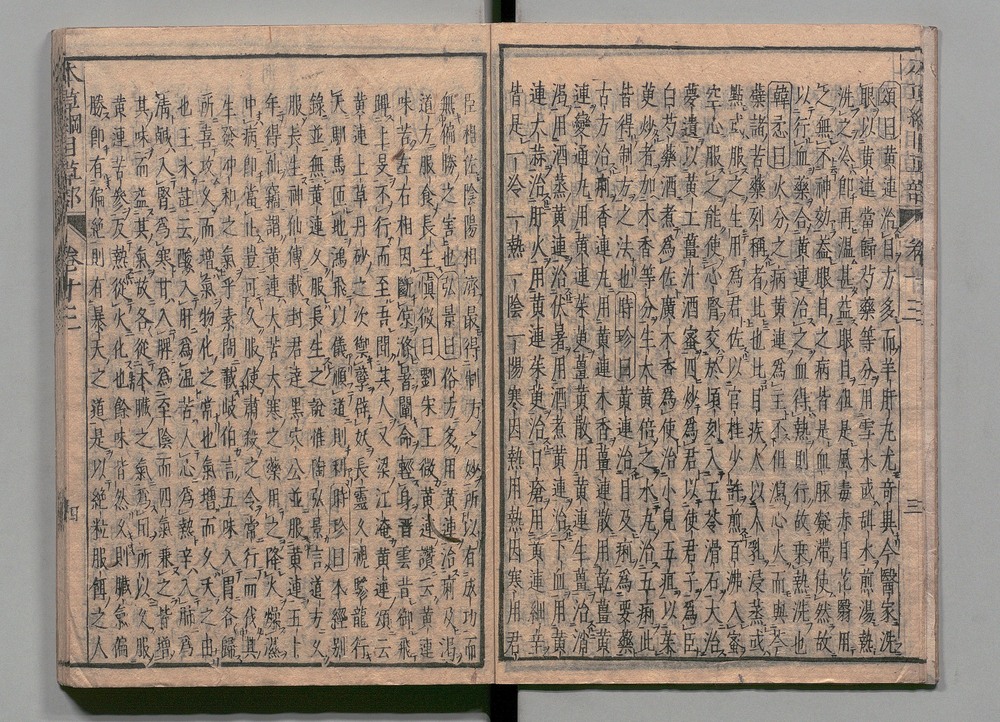 本草綱目草部 卷十三 三
頌曰黃連治目方多而羊肝丸尤奇異今醫家洗
眼以黃連當歸芍藥等分用雪水或甜水煎湯熱
洗之冷即再溫甚益眼目但是風毒赤目花翳用
之無不神効蓋眼目之病皆是血脉凝滯使然故
以行血藥合黃連治之血得熱則行故乘熱洗也
韓㦛曰火分之病黃連為主不但瀉心火而與芩
蘗諸苦藥列稱者比也目疾人以人乳浸蒸或
點或服之生用為君佐以官桂少許煎百沸入蜜
空心服之能使心腎交於頃刻入五苓滑石大治
夢遺以黃土薑汁酒蜜四炒為君以使君子為臣
白芍藥酒煮為佐廣木香為使治小兒五疳以茱
萸炒者加木香等分生大黃倍之水丸治五痢此
皆得制方之法也時珍曰黃連治目及痢為要藥
古方治痢香連丸用黃連木香薑連散用乾薑黃
連變通丸用黃連茱萸薑黃散用黃連生薑治消
渴用酒蒸黃連治伏暑用酒煮黃連治下血用黃
連大蒜治肝火用黃連茱萸治口瘡用黃連細辛
皆是一冷一熱一陰一陽寒因熱用熱因寒用君
臣相佐陰陽相濟最得制方之妙所以有成功而
無偏勝之害也弘景曰俗方多用黃連治痢及渴
道方服食長生慎微曰劉宋王微黃連讚云黃連
味苦左右相因斷凉滌暑闡命輕身晉雲昔御飛
興上旻不行而至吾聞其人又梁江淹黃連頌云
黃連上草丹砂之次禦孽辟妖長靈久視驂龍行
天馴馬匝地鴻飛以儀順道則利時珍曰本經别
錄並無黃連久服長生之說惟陶弘景言道方久
服長生神仙傳載封君達黑穴公並服黃連五十
年得仙竊謂黃連大苦大寒之藥用之降火燥濕
中病即當止豈可久服使肅殺之令常行而伐其
生發冲和之氣乎素問載岐伯言五味入胃各歸
所喜攻久而增氣物化之常也氣增而久夭之由
也王氷註云酸入肝為溫苦入心為熱辛入肺為
清鹹入腎為寒甘入脾為至陰而四氣兼之皆增
其味而益其氣故各從本臟之氣為用所以久服
黃連苦參反熱從火化也餘味皆然久則臟氣偏
勝即有偏絕則有暴夭之道是以絕粒服餌之人
本草綱目草部 卷十三 四